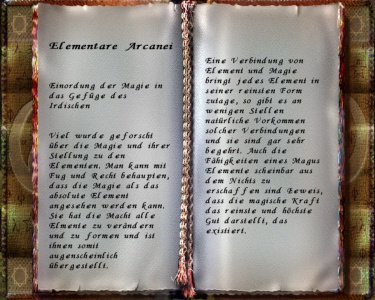 Elementare Arcanei
Einordung der Magie in
das Gefüge des
Irdischen
Viel wurde geforscht
über die Magie und ihrer
Stellung zu den
Elementen. Man kann mit
Fug und Recht behaupten,
dass die Magie als das
absolute Element
angesehen werden kann.
Sie hat die Macht alle
Elmente zu verändern
und zu formen und ist
ihnen somit
augenscheinlich
übergestellt.
Eine Verbindung von
Element und Magie
bringt jedes Element in
seiner reinsten Form
zutage, so gibt es an
wenigen Stellen
natürliche Vorkommen
solcher Verbindungen
und sie sind gar sehr
begehrt. Auch die
Fähigkeiten eines Magus
Elemente scheinbar aus
dem Nichts zu
erschaffen sind Beweis,
dass die magische Kraft
das reinste und höchste
Gut darstellt, das
existiert.